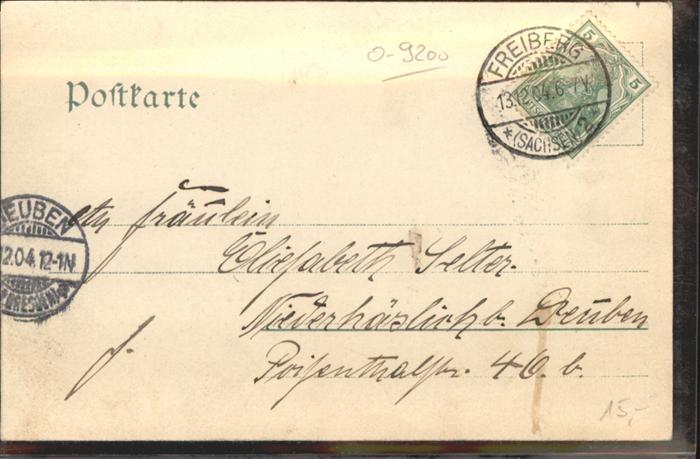 O-9200
Postkarte
FREIBERG
13.12.04.6-7
*(SACHSEN)2
5
5
DEUBEN
12.04.12-1N
Fräulein
Elisabeth Selter.
Niederhäslich b. Deuben
Poisenthalstr. 40. b.
f.
15,-